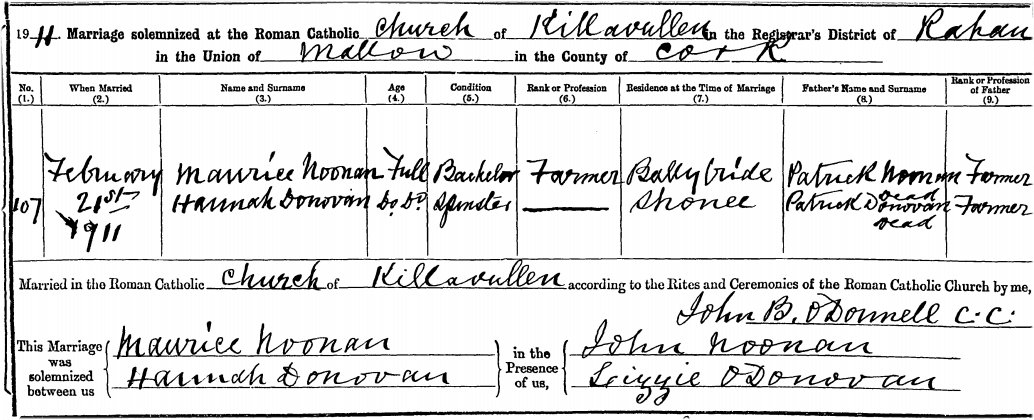 1911. Marriage solemnized at the Roman Catholic Church of Killavullen in the Registrar's District of Rahan
in the Union of Mallow in the County of Cork
No. When Married Name and Surname Age Condition Rank or Profession Residence at the Time of Marriage Father's Name and Surname Rank or Profession of Father
(1.) (2.) (3.) (4.) (5.) (6.) (7.) (8.) (9.)
February Maurice Noonan Full Bachelor Farmer Ballybride Patrick Noonan Farmer
Dead
107 21st Hannah Donovan Do Do Spinster Shonee Patrick Donovan Farmer
1911 Dead
Married in the Roman Catholic Church of Killavullen according to the Rites and Ceremonies of the Roman Catholic Church by me,
John B. O'Donnell C.C.
This Marriage was solemnized between us Maurice Noonan in the Presence of us, John Noonan
Hannah Donovan Lizzie O'Donovan